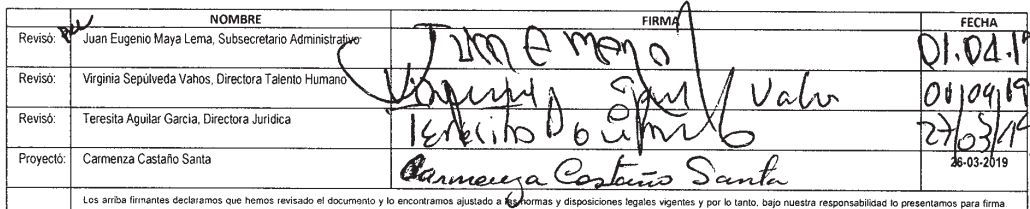 NOMBRE FIRMA FECHA
Revisó: Juan Eugenio Maya Lema, Subsecretario Administrativo Juan E Maya 01.04.19
Revisó: Virginia Sepúlveda Vahos, Directora Talento Humano Virginia Vahos 01/04/19
Revisó: Teresita Aguilar García, Directora Jurídica Teresita 27/03/19
Proyectó: Carmenza Castaño Santa Carmenza Castaño Santa 26-03-2019
Los arriba firmantes declaramos que hemos revisado el documento y lo encontramos ajustado a las normas y disposiciones legales vigentes y por lo tanto, bajo nuestra responsabilidad lo presentamos para firma